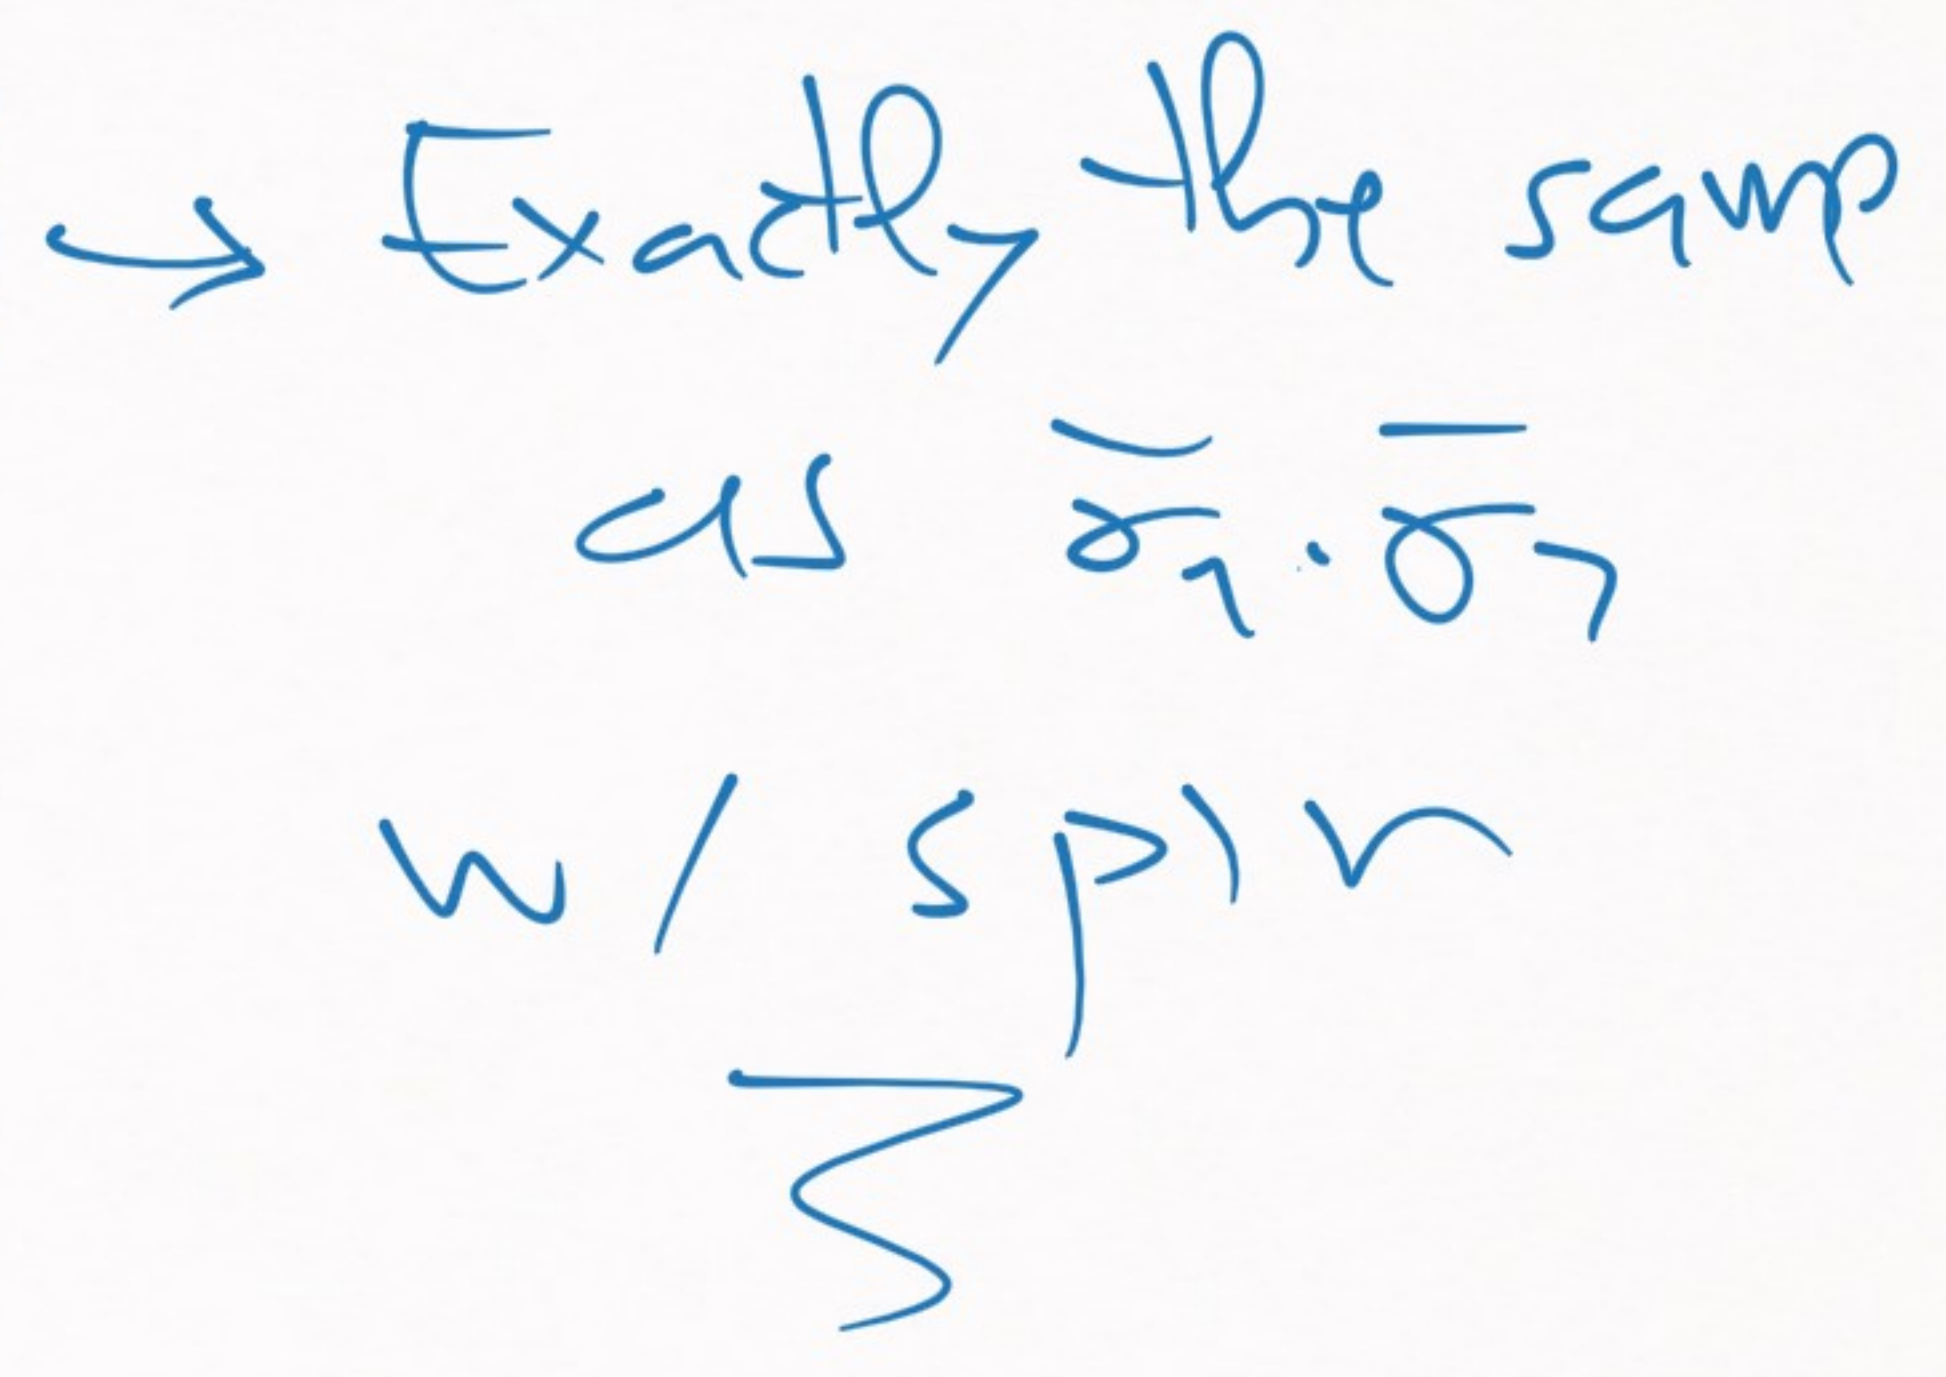 → Exactly the same
as σ̅₁·σ̅₂
w/ spin